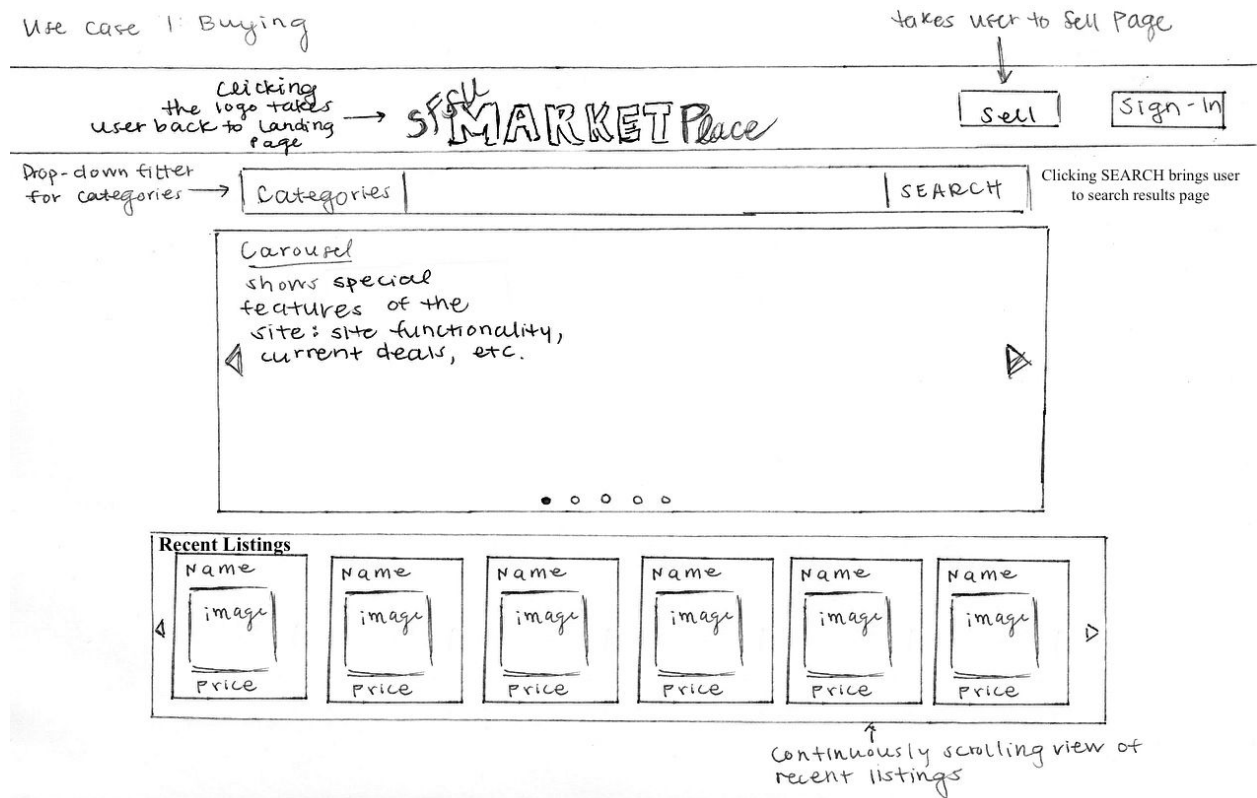 Use case 1: Buying
takes user to Sell Page
clicking
the logo takes
user back to landing
page
SFSU MARKETPlace
Sell
Sign-In
Drop-down filter
for categories
Categories
SEARCH
Clicking SEARCH brings user
to search results page
Carousel
shows special
features of the
site: site functionality,
current deals, etc.
Recent Listings
Name
image
Price
Name
image
Price
Name
image
Price
Name
image
Price
Name
image
Price
Name
image
Price
Continuously scrolling view of
recent listings